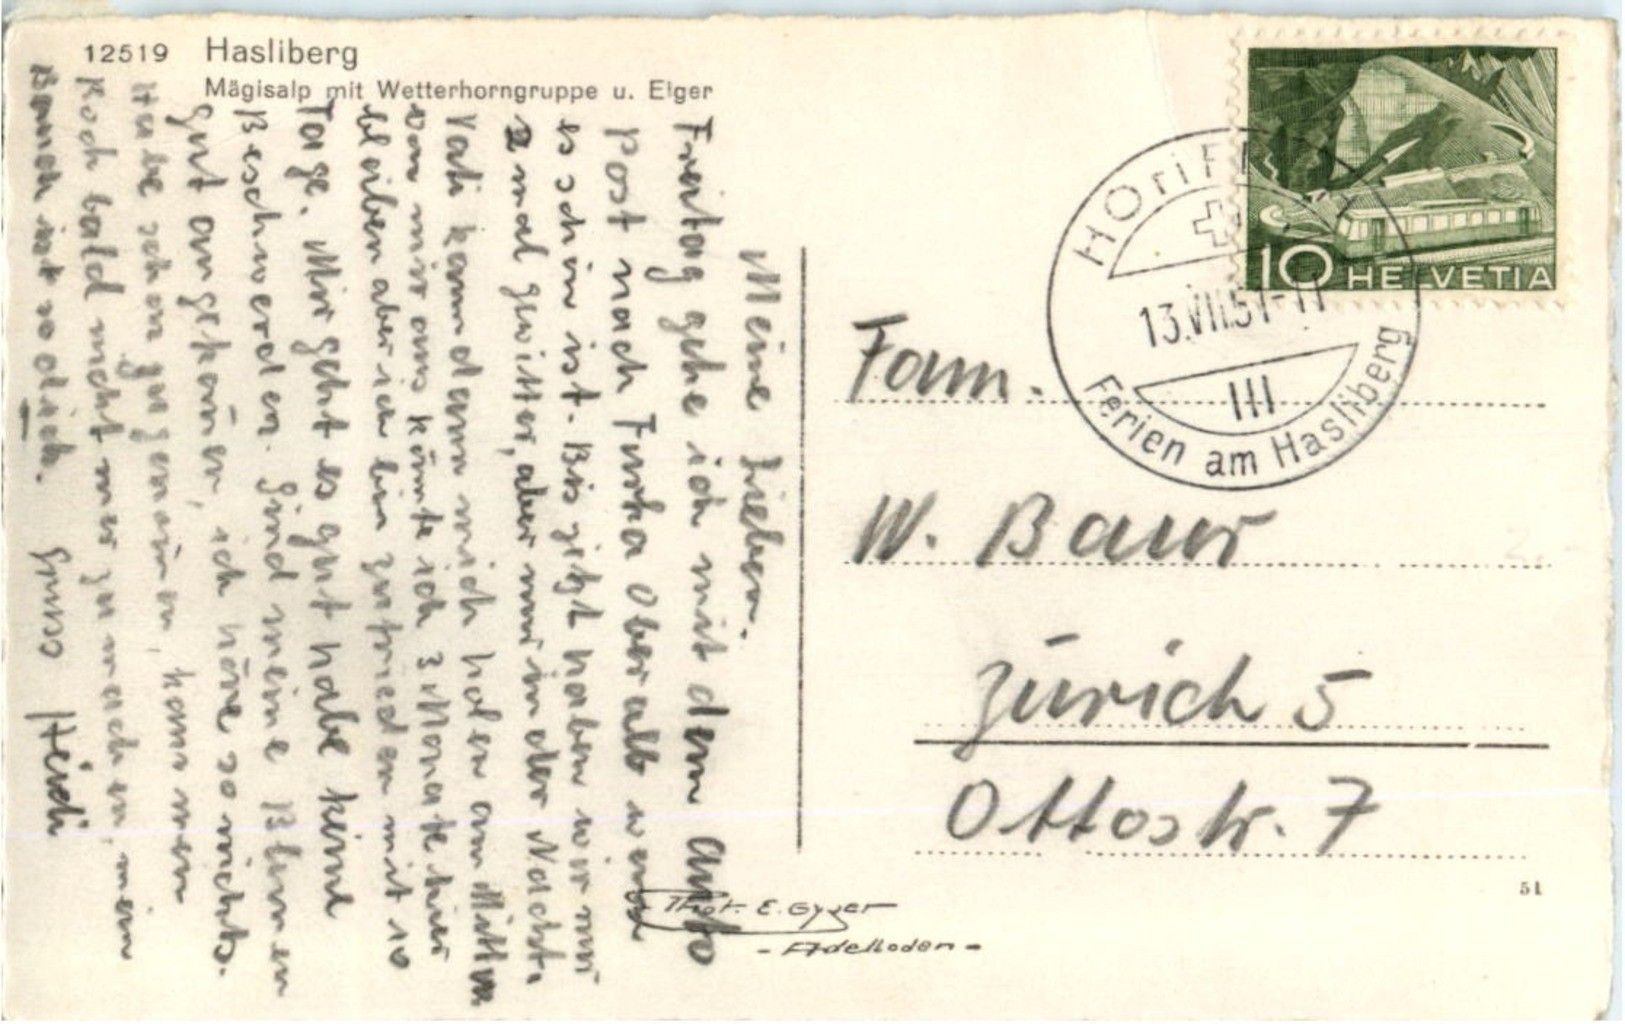 12519 Hasliberg
Mägisalp mit Wetterhorngruppe u. Eiger
Meine Lieben.
Freitag gehe ich mit dem Auto
Post nach Furka Oberalb wenn
es schön ist. Bis jetzt haben wir nur
2 mal gewitter, aber nur in der Nacht.
Vati kann dann mich holen am Mittw
von mir aus könnte ich 3 Monate hier
bleiben aber ich bin zufrieden mit 10
Tage. Mir geht es gut habe keine
Beschwerden. Sind meine Blumen
gut angekomen, ich höre so nichts.
Habe schon zugenomen, kann nen
Rock bald nicht mer zu machen, mein
Bauch ist so dick. Gruss Heidi
Fam.
W. Baur
Zürich 5
Ottostr. 7
HELVETIA
10
13.VII.51-11
III
Ferien am Hasliberg
Phot. E. Gyger
- Adelboden -
51